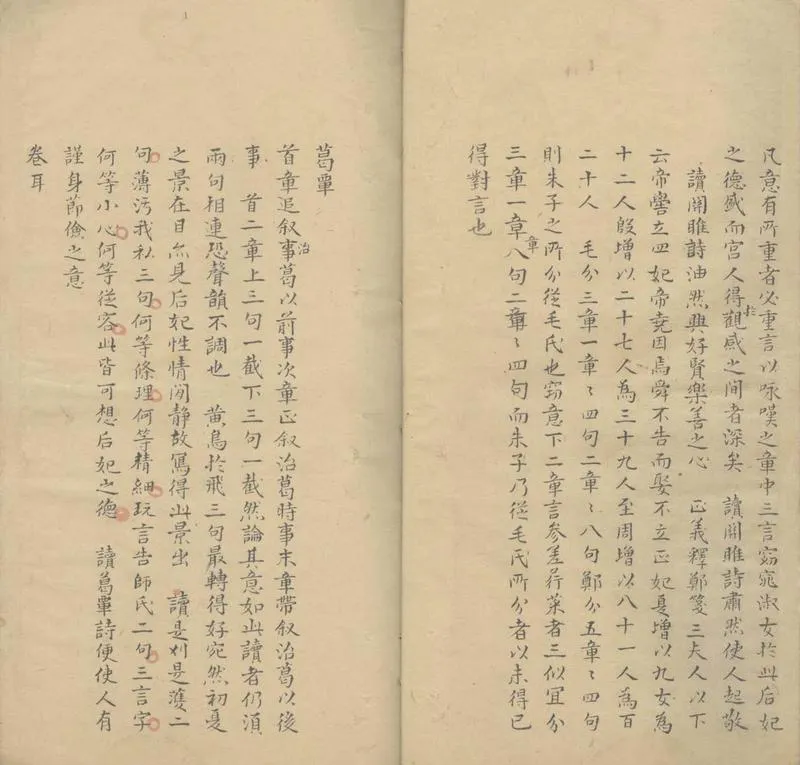 凡意有所重者必重言以咏嘆之章中三言窈窕淑女於此后妃
之德盛而宮人得於觀感之間者深矣　讀關雎詩肅然使人起敬
讀關雎詩油然興好賢樂善之心　正義釋鄭箋三夫人以下
云帝嚳立四妃帝堯因焉舜不告而娶不立正妃夏增以九女為
十二人殷增以二十七人為三十九人至周增以八十一人為百
二十人　毛分三章一章〻四句二章〻八句鄭分五章〻四句
則朱子之所分從毛氏也窃意下二章言參差荇菜者三似宜分
三章一章八句二章〻四句而朱子乃從毛氏所分者以未得已
得對言也
葛覃
首章追叙治葛以前事次章正叙治葛時事末章帶叙治葛以後
事　首二章上三句一截下三句一截然論其意如此讀者仍須
兩句相連恐聲韻不調也　黃鳥於飛三句最轉得好宛然初夏
之景在目亦見后妃性情閒静故寫得此景出　讀是刈是濩二
句薄污我私三句何等條理何等精細玩言告師氏二句三言字
何等小心何等從容此皆可想后妃之德　讀葛覃詩便使人有
謹身節儉之意
卷耳